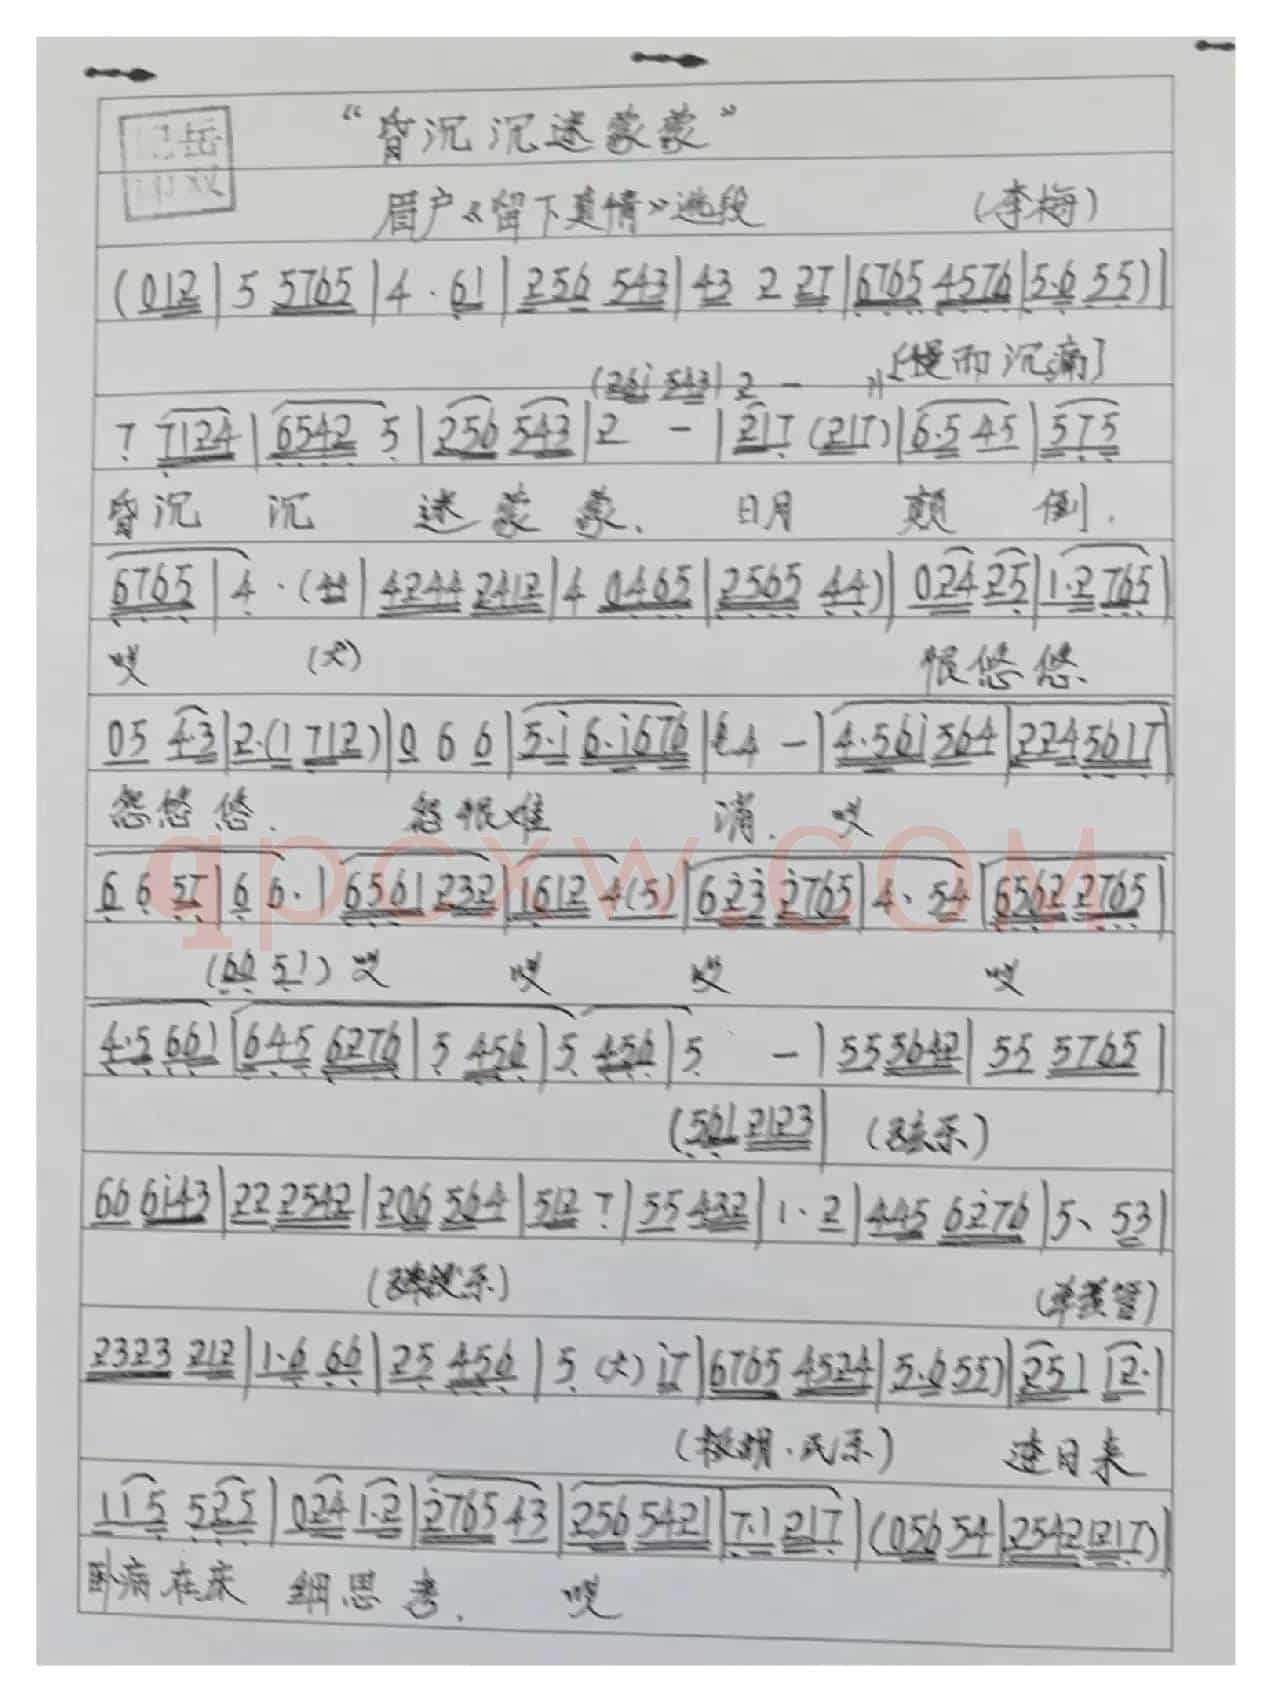 “昏沉沉迷蒙蒙”
眉户《留下真情》选段 (李梅)
(012|5 5765|4·61|256 543|43 2 27|6765 4576|5·6 55)|
(26i 543|2 - )[慢而沉痛]
7 7124|6542 5|256 543|2 -|217(217)|6·5 45|575
昏沉 沉 迷蒙蒙. 日月 颠 倒.
6765|4·(44|4244 2412|4 0465|2565 44)|024 25|1·2 765|
哎 (大) 恨悠悠.
05 4·3|2·(1 712)|0 6 6|5·i 6·i676| 4 -|4·561 564|2245617|
怨悠悠. 怨恨难 消. 哎
qpcxw.COM
6 6 57|6 6·|6561 232|1612 4(5)|623 2765|4·54|6562 2765|
(60 51) 哎 哎 哎 哎
4·5 661|645 6276|5 456|5 456|5 -|55 5642|55 5765|
(561 2123| (弦乐)
66 6i43|22 2542|206 564|512 7|55 432|1·2|445 6276|5、53|
2323 212|1·6 66|25 456|5 (大) i7|6765 4524|5·6 55)|251 12·|
(板胡·民乐) 连日来
115 525|024 1·2|2765 43|256 5421|7·1 217|(056 54|2542 1217)|
卧病在床 细思考. 哎